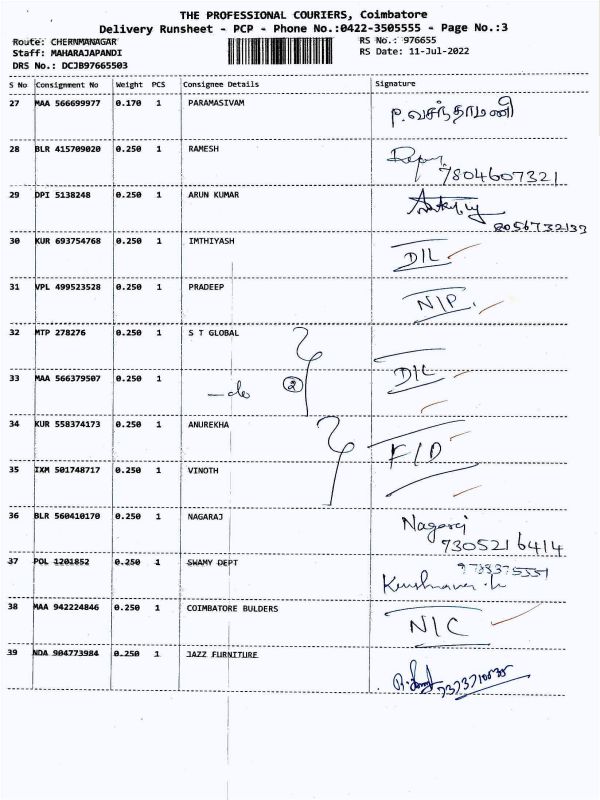 THE PROFESSIONAL COURIERS, Coimbatore
Delivery Runsheet - PCP - Phone No.:0422-3505555 - Page No.:3
Route: CHERNMANAGAR RS No.: 976655
Staff: MAHARAJAPANDI RS Date: 11-Jul-2022
DRS No.: DCJB97665503
S No Consignment No Weight PCS Consignee Details Signature
27 MAA 566699977 0.170 1 PARAMASIVAM P.வசந்தாமணி
28 BLR 415709020 0.250 1 RAMESH
7804607321
29 DPI 5138248 0.250 1 ARUN KUMAR
8056732133
30 KUR 693754768 0.250 1 IMTHIYASH D/L
31 VPL 499523528 0.250 1 PRADEEP N/P
32 MTP 278276 0.250 1 S T GLOBAL
33 MAA 566379507 0.250 1 D/L
-do 2
34 KUR 558374173 0.250 1 ANUREKHA F/D
35 IXM 501748717 0.250 1 VINOTH
36 BLR 560410170 0.250 1 NAGARAJ Nagaraj
7305216414
37 POL 1201852 0.250 1 SWAMY DEPT
38 MAA 942224846 0.250 1 COIMBATORE BULDERS N/C
39 NDA 904773984 0.250 1 JAZZ FURNITURE